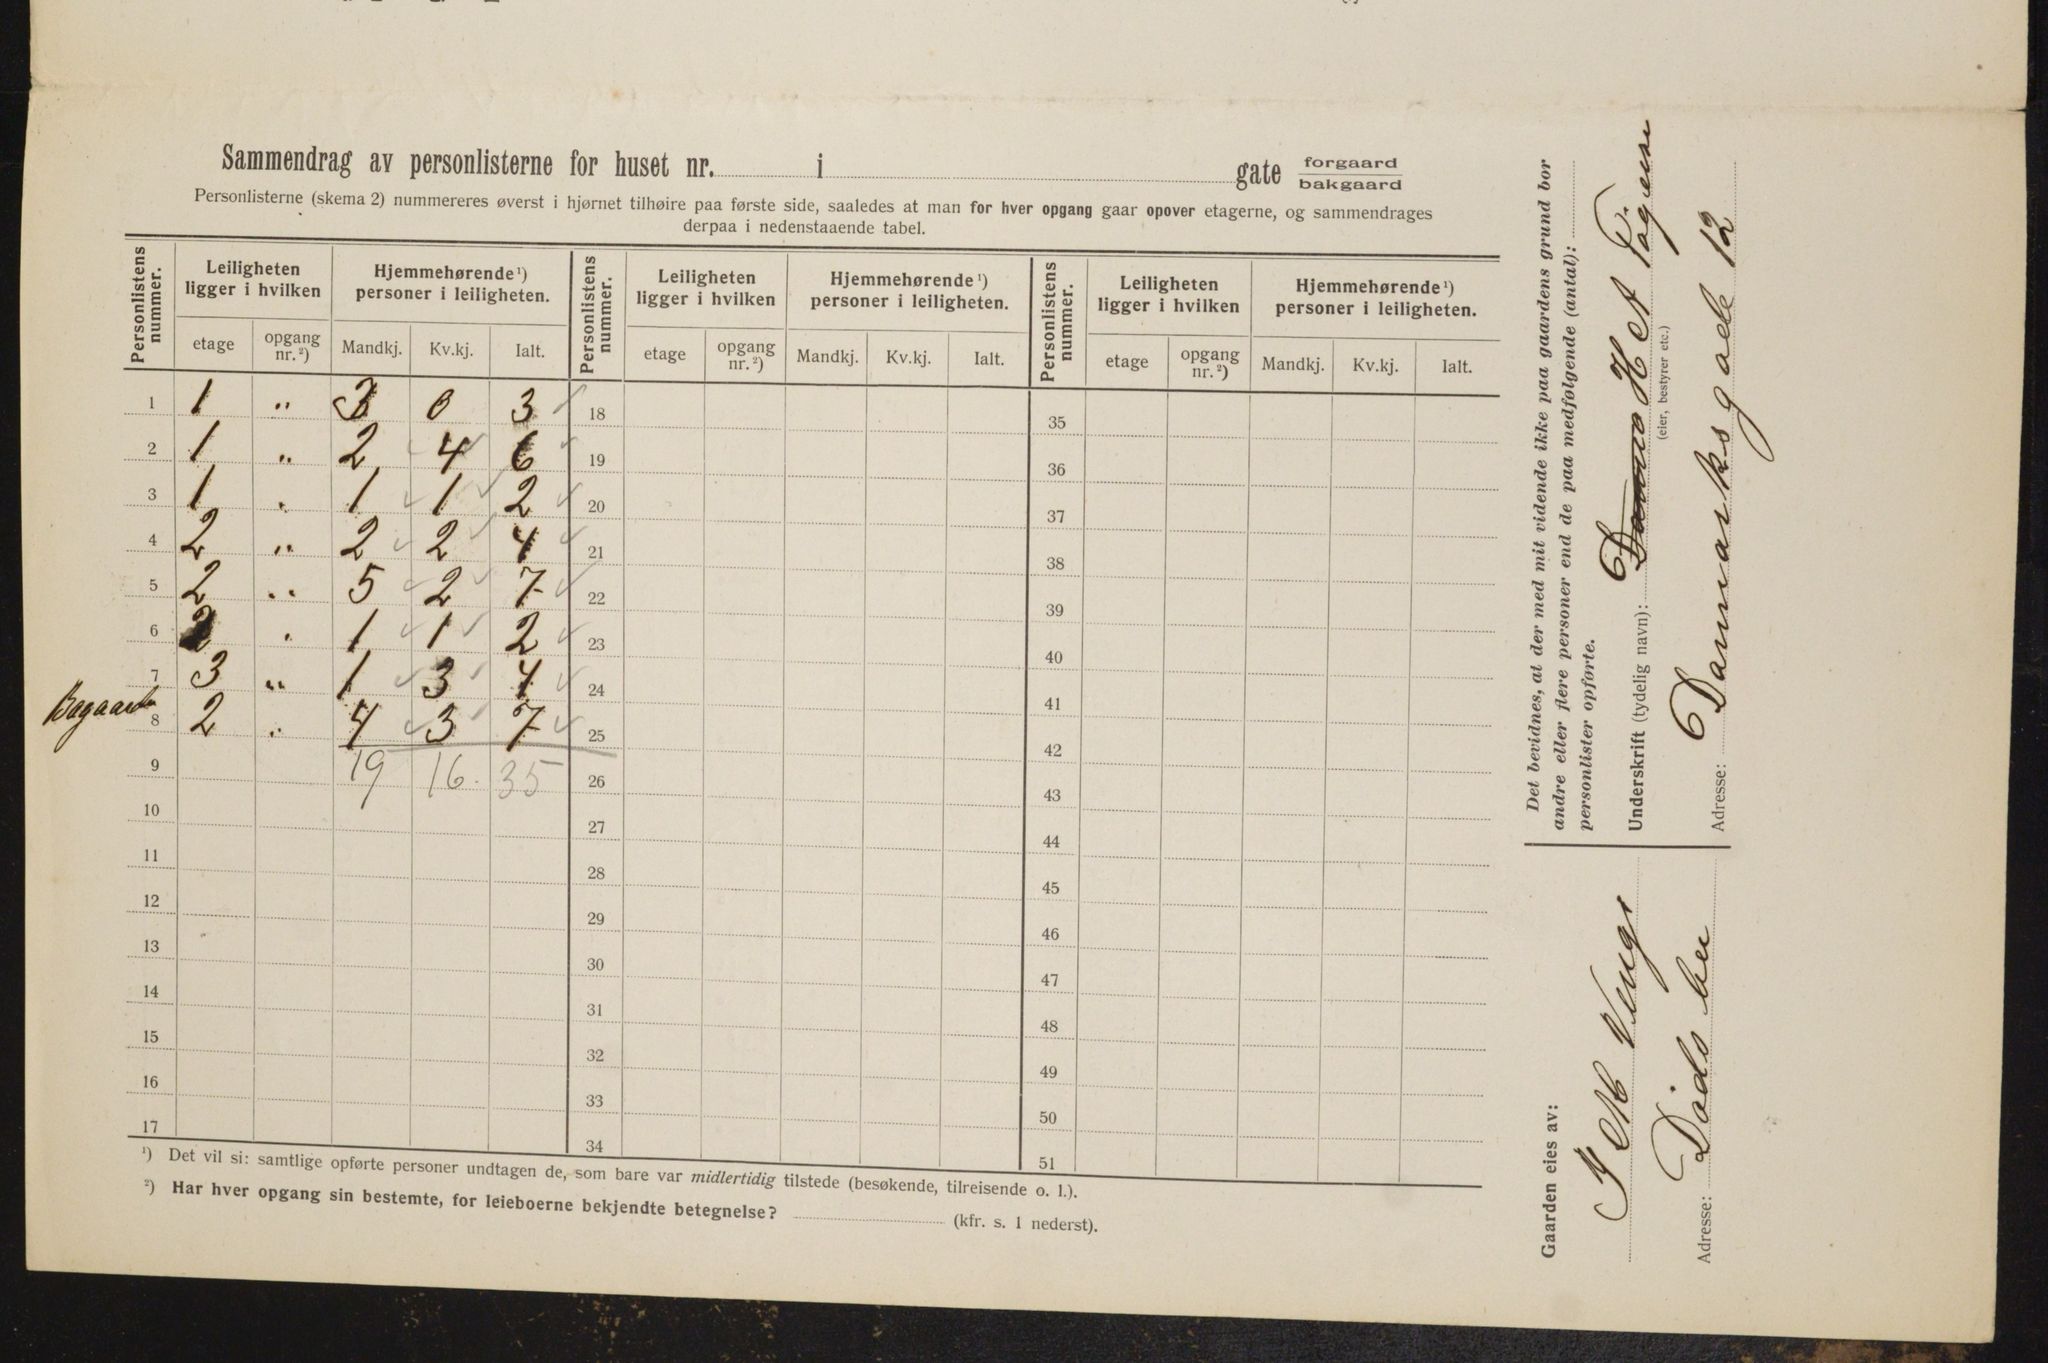 Sammendrag av personlisterne for huset nr. i gate forgaard bakgaard
Personlisterne (skema 2) nummereres øverst i hjørnet tilhøire paa første side, saaledes at man for hver opgang gaar opover etagerne, og sammendrages
derpaa i nedenstaaende tabel.
Personlistens nummer. Leiligheten ligger i hvilken Hjemmehørende¹) personer i leiligheten. Personlistens nummer. Leiligheten ligger i hvilken Hjemmehørende¹) personer i leiligheten. Personlistens nummer. Leiligheten ligger i hvilken Hjemmehørende¹) personer i leiligheten.
etage opgang nr.²) Mandkj. Kv.kj. Ialt. etage opgang nr.²) Mandkj. Kv.kj. Ialt. etage opgang nr.²) Mandkj. Kv.kj. Ialt.
1 1 " 3 0 3 18 35
2 1 " 2 4 6 19 36
3 1 " 1 1 2 20 37
4 2 " 2 2 4 21 38
5 2 " 5 2 7 22 39
6 2 " 1 1 2 23 40
7 3 " 1 3 4 24 41
Bagaard 8 2 " 4 3 7 25 42
9 19 16 35 26 43
10 27 44
11 28 45
12 29 46
13 30 47
14 31 48
15 32 49
16 33 50
17 34 51
¹) Det vil si: samtlige opførte personer undtagen de, som bare var midlertidig tilstede (besøkende, tilreisende o. l.).
²) Har hver opgang sin bestemte, for leieboerne bekjendte betegnelse? (kfr. s. 1 nederst).
Det bevidnes, at der med mit vidende ikke paa gaardens grund bor
andre eller flere personer end de paa medfølgende (antal):
personlister opførte.
Underskrift (tydelig navn):
(eier, bestyrer etc.)
Adresse: Danmarksgade 12
Gaarden eies av:
Adresse: